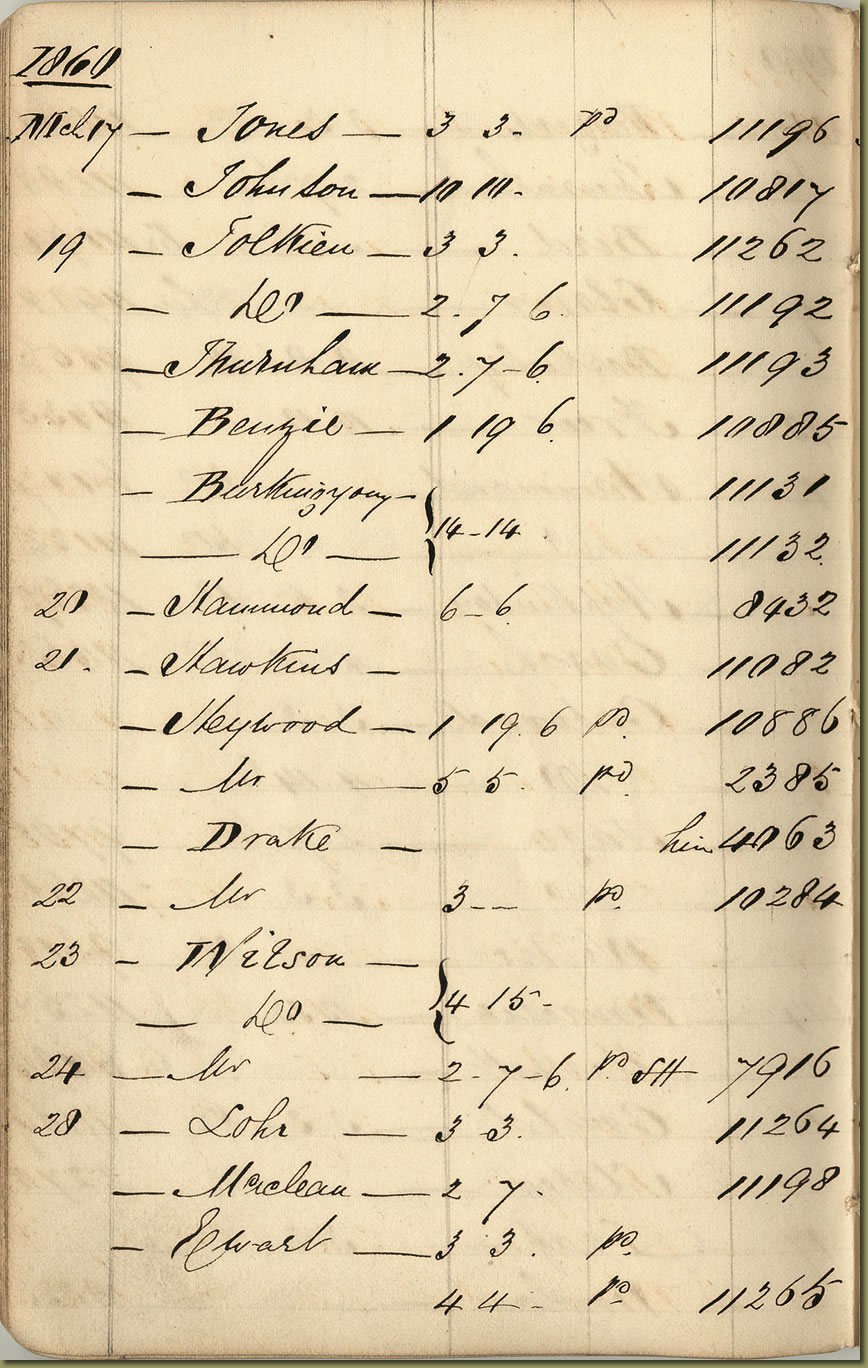 1860
Mch 17 — Jones — 3 3 - pd 11196
— Johnson — 10 10 - 10817
19 — Tolkien — 3 3 . 11262
— Do — 2 . 7 6 . 11192
— Thurnham — 2 . 7 - 6 . 11193
— Benzie — 1 19 6 . 10885
— 11131
— Do — { 14 - 14 . 11132 .
20 — Hammond — 6 - 6 . 8432
21 . — Hawkins — 11082
— Heywood — 1 19 . 6 pd . 10886
— Mr — 5 5 . pd . 2385
— Drake — 4063
22 — Mr 3 - - pd . 10284
23 — Wilson —
— Do — { 4 15 -
24 — Mr 2 - 7 - 6 . pd SH 7916
28 — Lohr — 3 3 . 11264
— Maclean — 2 7 . 11198
— Ewart — 3 3 . pd .
4 4 - pd 11265